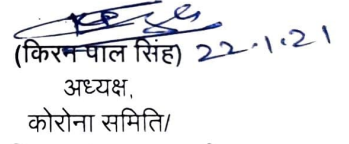 (किरन पाल सिंह) 22.1.21
अध्यक्ष,
कोरोना समिति/